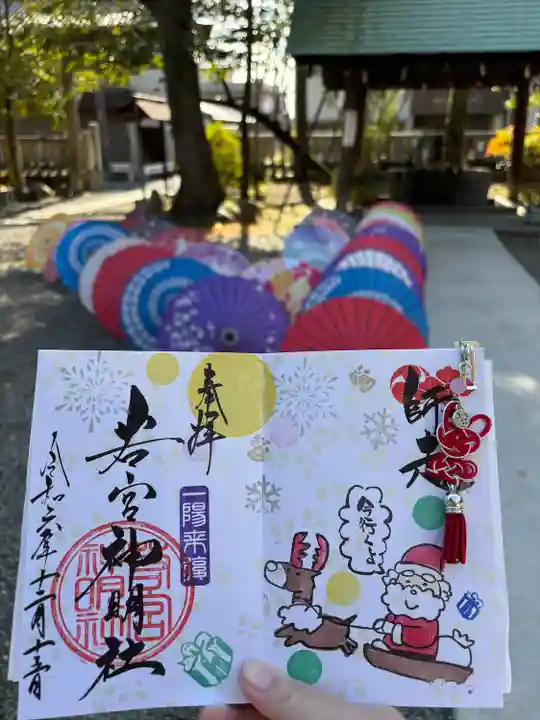 師走
今行くよ
奉拝
一陽来復
若宮神明社
令和六年十二月十三日